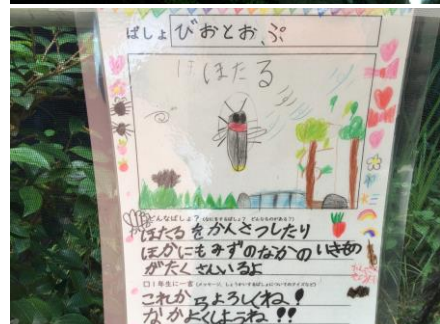 ばしょ びおとおぷ
ほたる
どんなばしょ?
ほたるをかんさつしたり
ほかにもみずのなかのいきもの
がたくさんいるよ
口1年生に一言
これからよろしくね!
なかよくしようね!!